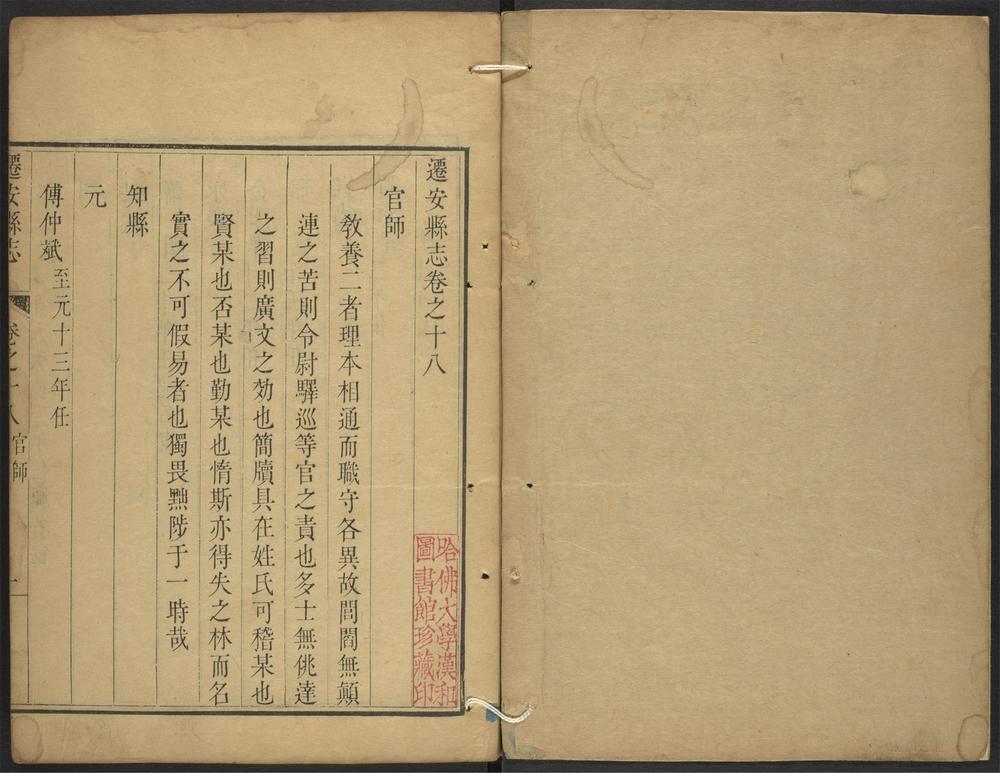 遷安縣志卷之十八
官師
教養二者理本相通而職守各異故閭閻無顛
連之苦則令尉驛巡等官之責也多士無佻達
之習則廣文之効也簡牘具在姓氏可稽某也
賢某也否某也勤某也惰斯亦得失之林而名
實之不可假易者也獨畏黜陟于一時哉
知縣
元
傅仲斌至元十三年任
遷安縣志 卷之十八官師 一
哈佛大學漢和
圖書館珍藏印